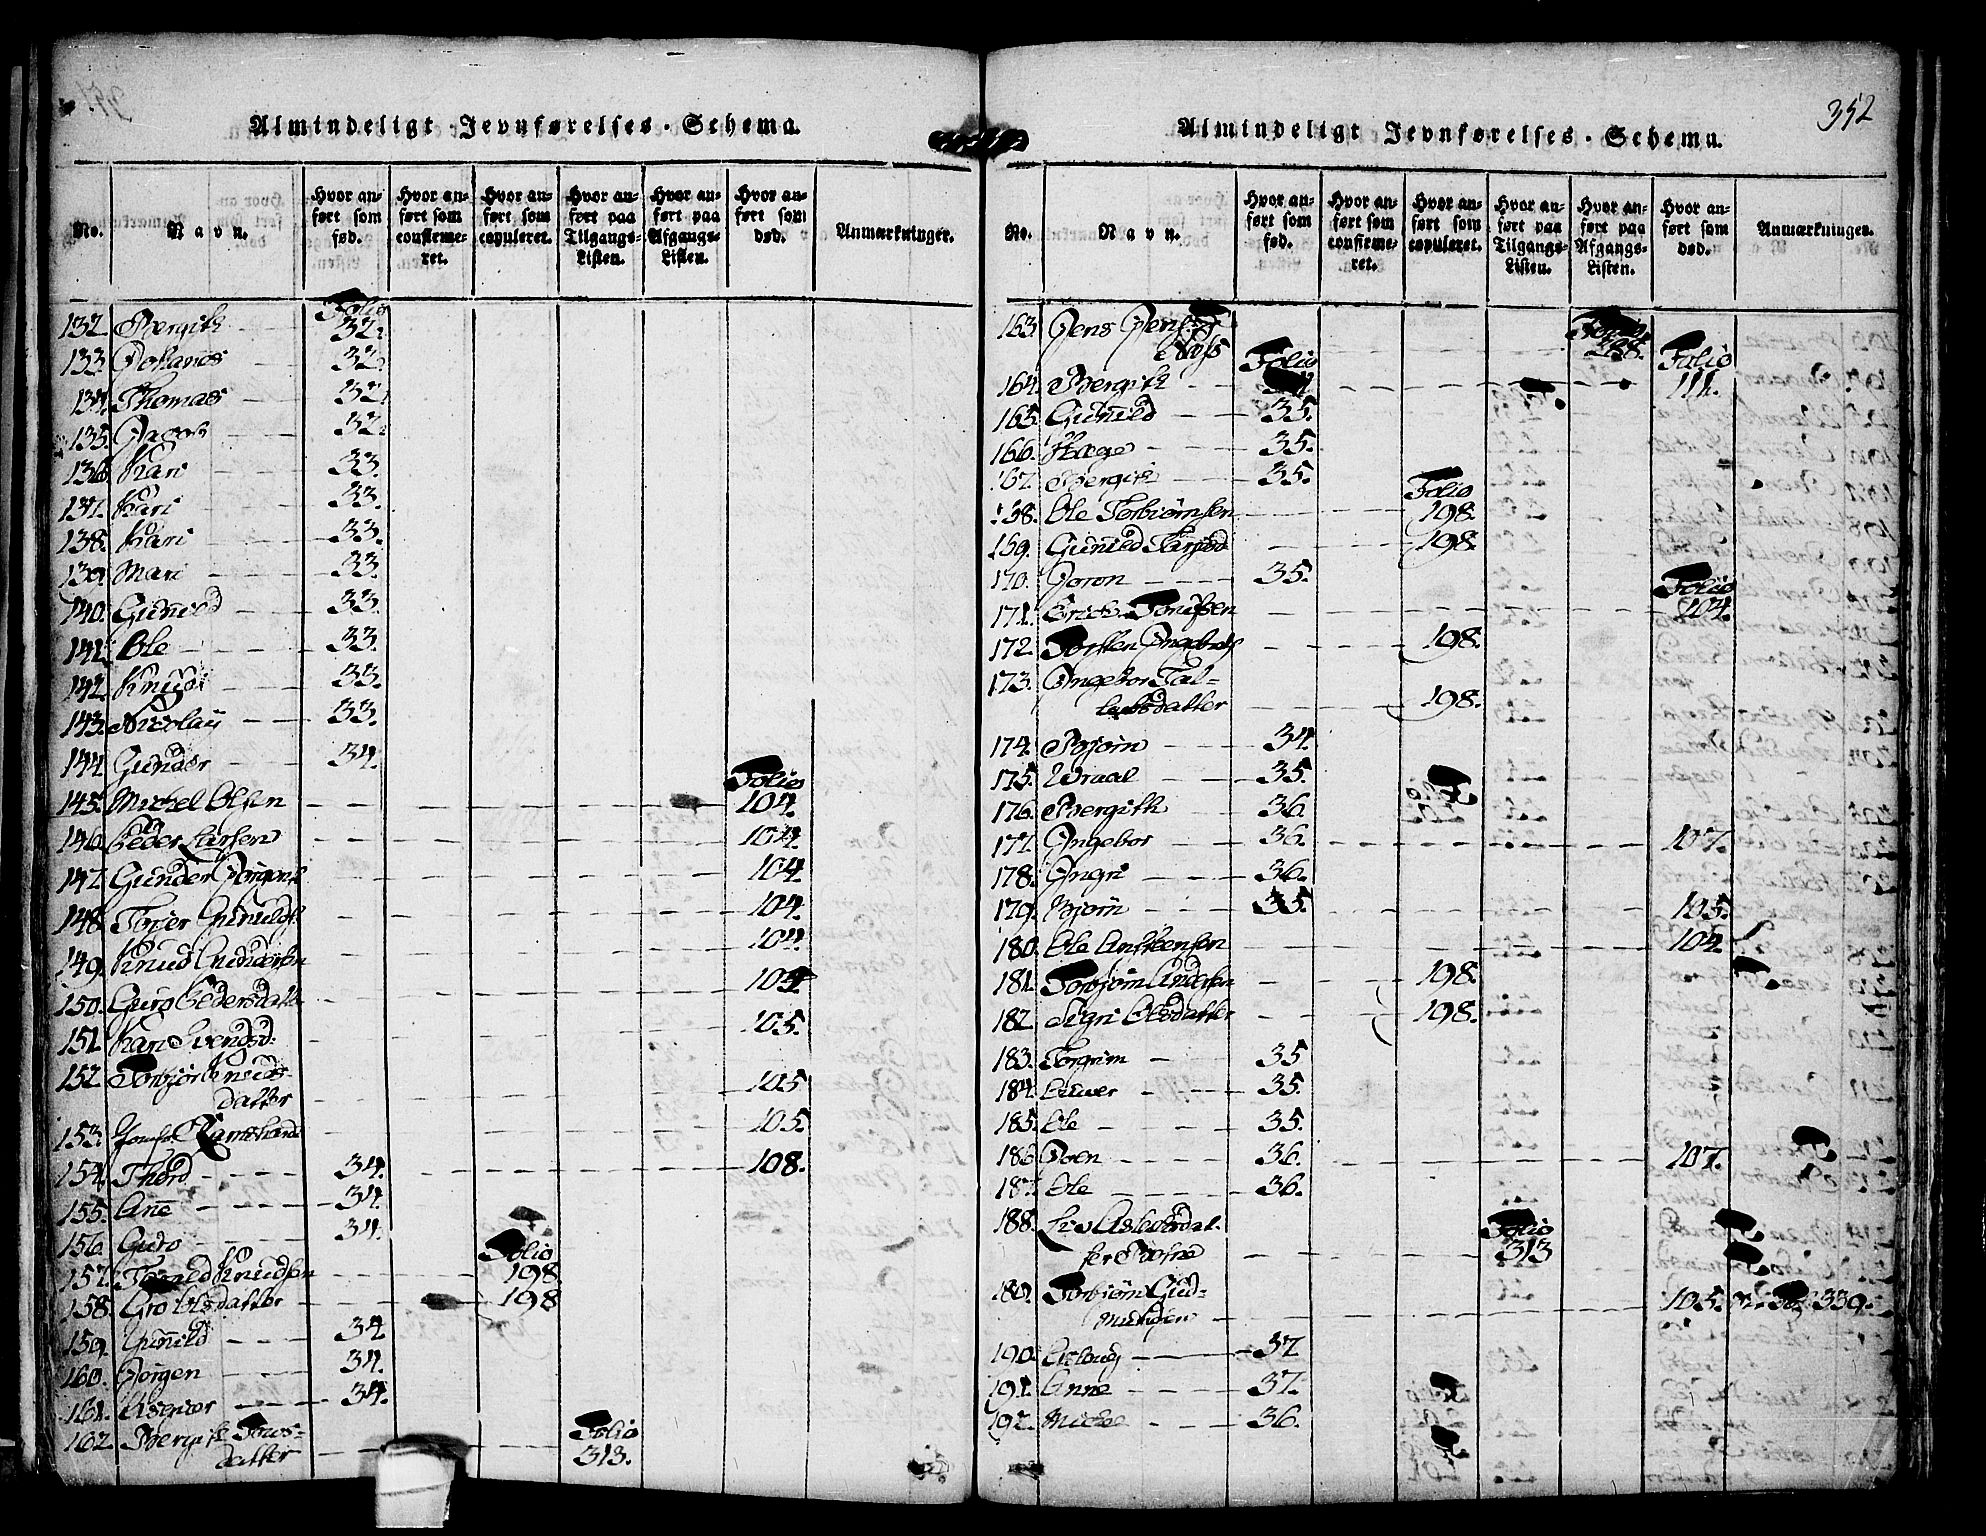 Almindeligt Jevnførelses-Schema.
No.
Navn.
Hvor anført som fød.
Hvor anført som confirmeret.
Hvor anført som copuleret.
Hvor anført paa Tilgangs-Listen.
Hvor anført paa Afgangs-Listen.
Hvor anført som død.
Anmærkninger.
Folio
132. Bergith 32.
133. Johanes 32.
134. Thomas 32.
135. Jacob 32.
136. Kari 33.
137. Kari 33.
138. Kari 33.
139. Mari 33.
140. Guniild 33.
141. Ole 33.
142. Knud 33.
143. Nicolay 33.
144. Gunder 34.
Folio
145. Michel Olsen 104.
146. Peder Larsen 104.
147. Gunder 104.
148. 104.
149. Knud Gundersen 104.
150. Guro Pedersdatter 104
151. Kari Svendsd: 105.
152. Torbjør Knuds-
datter 105
153. 105.
154. Thord 34. 108.
155. Ane 34.
156. Guro 34.
Folio
157. Knudsen 198.
158. Gro Olsdatter 198
159. Gunild 34
160. Jørgen 34.
161. Asgier 34.
Folio
162. Bergith
datter 313.
352
Almindeligt Jevnførelses-Schema.
No.
Navn.
Hvor anført som fød.
Hvor anført som confirmeret.
Hvor anført som copuleret.
Hvor anført paa Tilgangs-Listen.
Hvor anført paa Afgangs-Listen.
Hvor anført som død.
Anmærkninger.
163. Jens
Folio
Folio
164. Bergith 111.
165. Gunild 35.
166. Hæge 35.
167. Bergith 35.
Folio
168. Ole Torbiørnsen 198.
169. Gunild 198.
170. Joron 35.
Folio
171. 104.
172. Torsten 198.
173. Ingebor Tal-
datter 198.
174. Bjørn 34.
175. Wraal 35.
176. Bergith 36.
177. Ingebor 36. 107.
178. Ingri 36.
179. Bjørn 35. 105.
180. Ole 104.
181. Torbjørn Andersen 198.
182. Sigri Olsdatter 198.
183. Torgrim 35
184. 35.
185. Ole 35.
186. 36. 107.
187. Ole 36.
188. Liv
Folio
313
189. Torbjørn Gud-
mundsen 105. 339.
190. Asloug 37
191. Anne 37.
192. Michel 36.